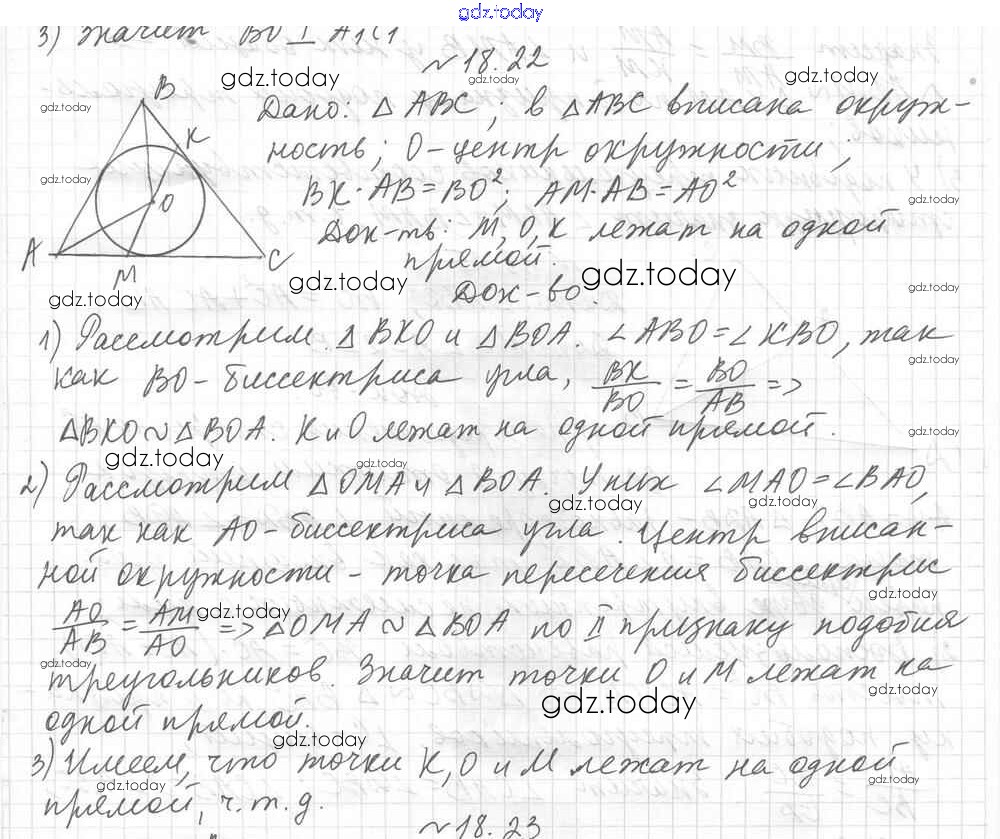 gdz.today
3) Значит BO ⊥ A₁C₁
№ 18.22
gdz.today
gdz.today
B
K
O
A
M
C
gdz.today
gdz.today
Дано: △ ABC; в △ABC вписана окруж-
ность; O-центр окружности;
BK · AB = BO²; AM · AB = AO²
gdz.today
Док-ть: M, O, K лежат на одной
прямой.
gdz.today
gdz.today
gdz.today
gdz.today
Док-во.
1) Рассмотрим △ BKO и △ BOA. ∠ABO = ∠KBO, так
gdz.today
как BO - биссектриса угла, BK/BO = BO/AB =>
△BKO ~ △ BOA. K и O лежат на одной прямой.
gdz.today
gdz.today
gdz.today
2) Рассмотрим △ OMA и △ BOA. У них ∠MAO = ∠BAO,
gdz.today
gdz.today
так как AO - биссектриса угла. Центр вписан-
ной окружности - точка пересечения биссектрис
gdz.today
AO/AB = AM/AO => △OMA ~ △BOA по II признаку подобия
gdz.today
gdz.today
треугольников. Значит точки O и M лежат на
gdz.today
gdz.today
одной прямой.
gdz.today
3) Имеем, что точки K, O и M лежат на одной
gdz.today
gdz.today
прямой, ч.т.д.
№ 18.23